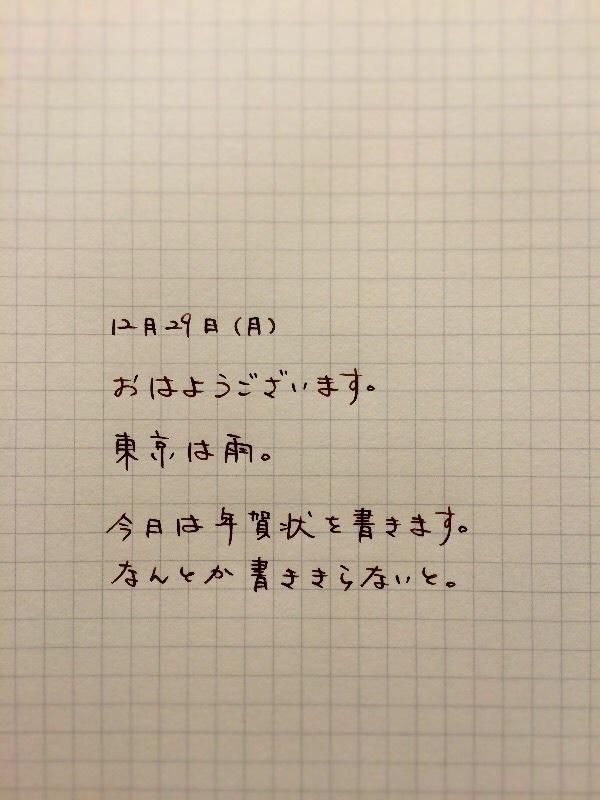 12月29日(月)
おはようございます。
東京は雨。
今日は年賀状を書きます。
なんとか書ききらないと。